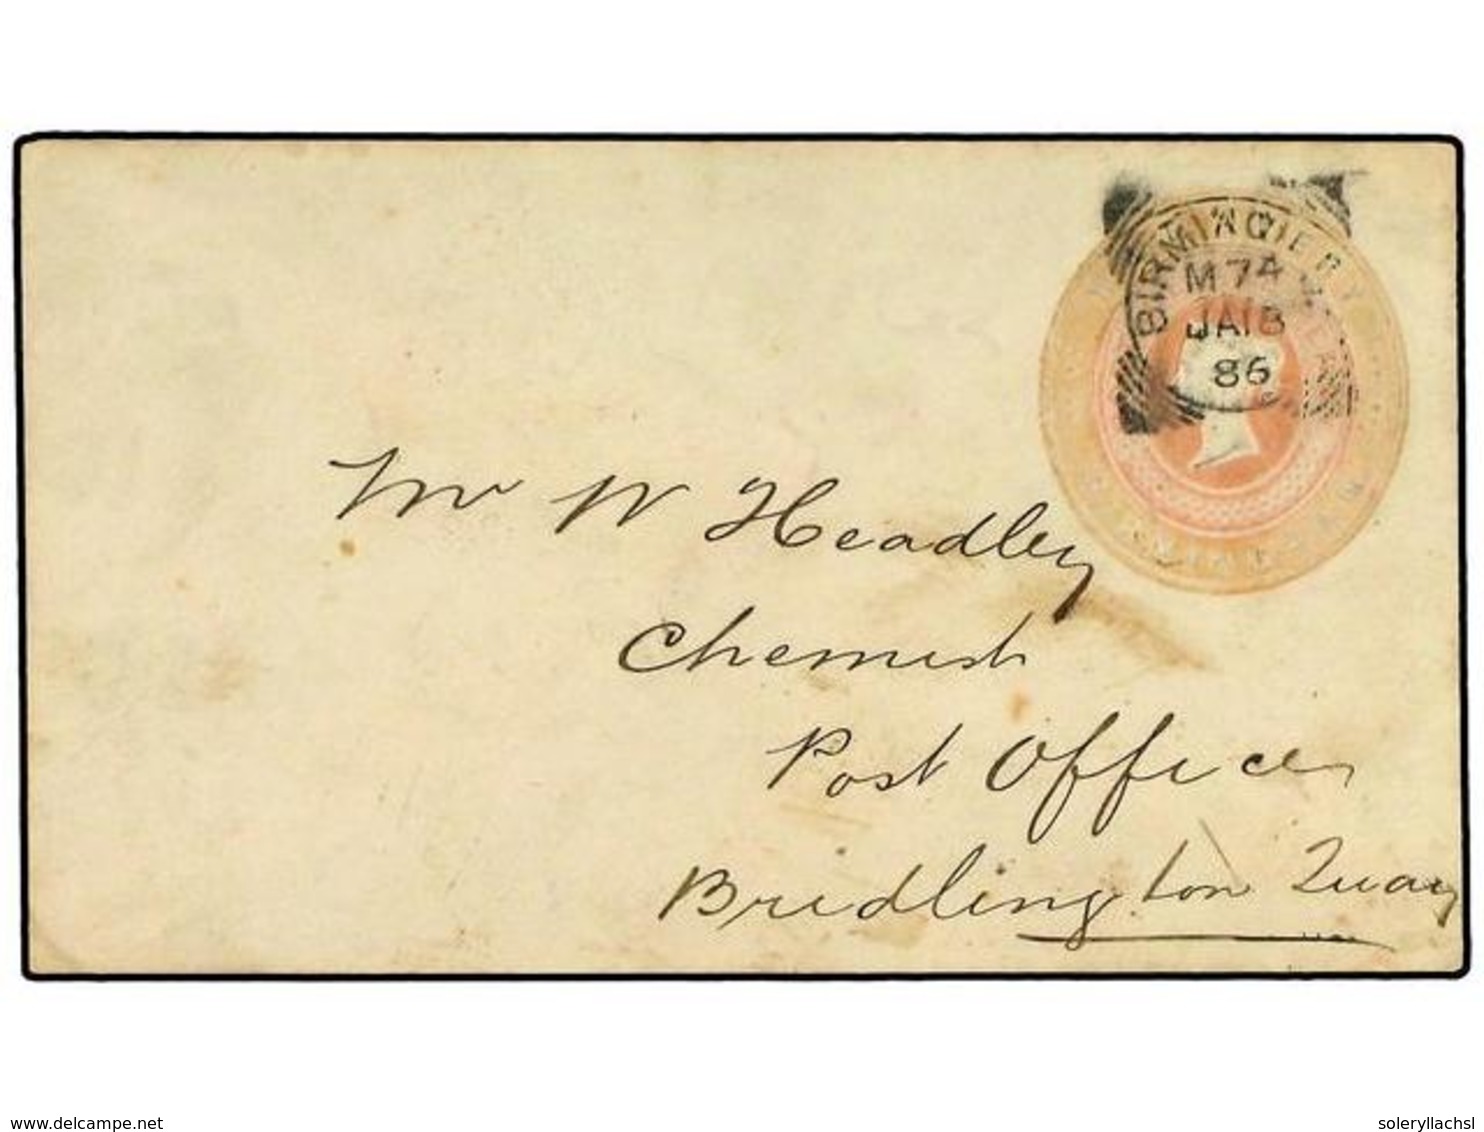 M 74
JA 18
86
Mr W Headley
Chemist
Post Office
Bridlington Quay
delcampe.net
soleryllachsl